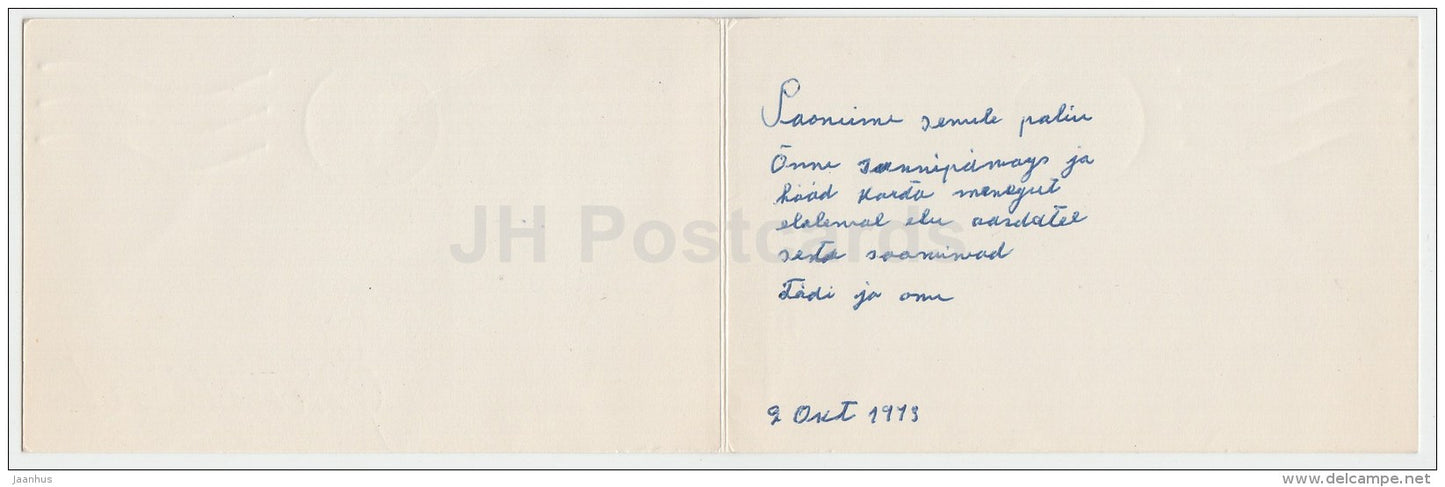 Soovime sinule palju
Õnne sünnipäevaks ja
hääd
elu aasdatel
seda soovivad
Tädi ja onu
9 Okt 1973
JH Postcards
jaanhus
www.delcampe.net